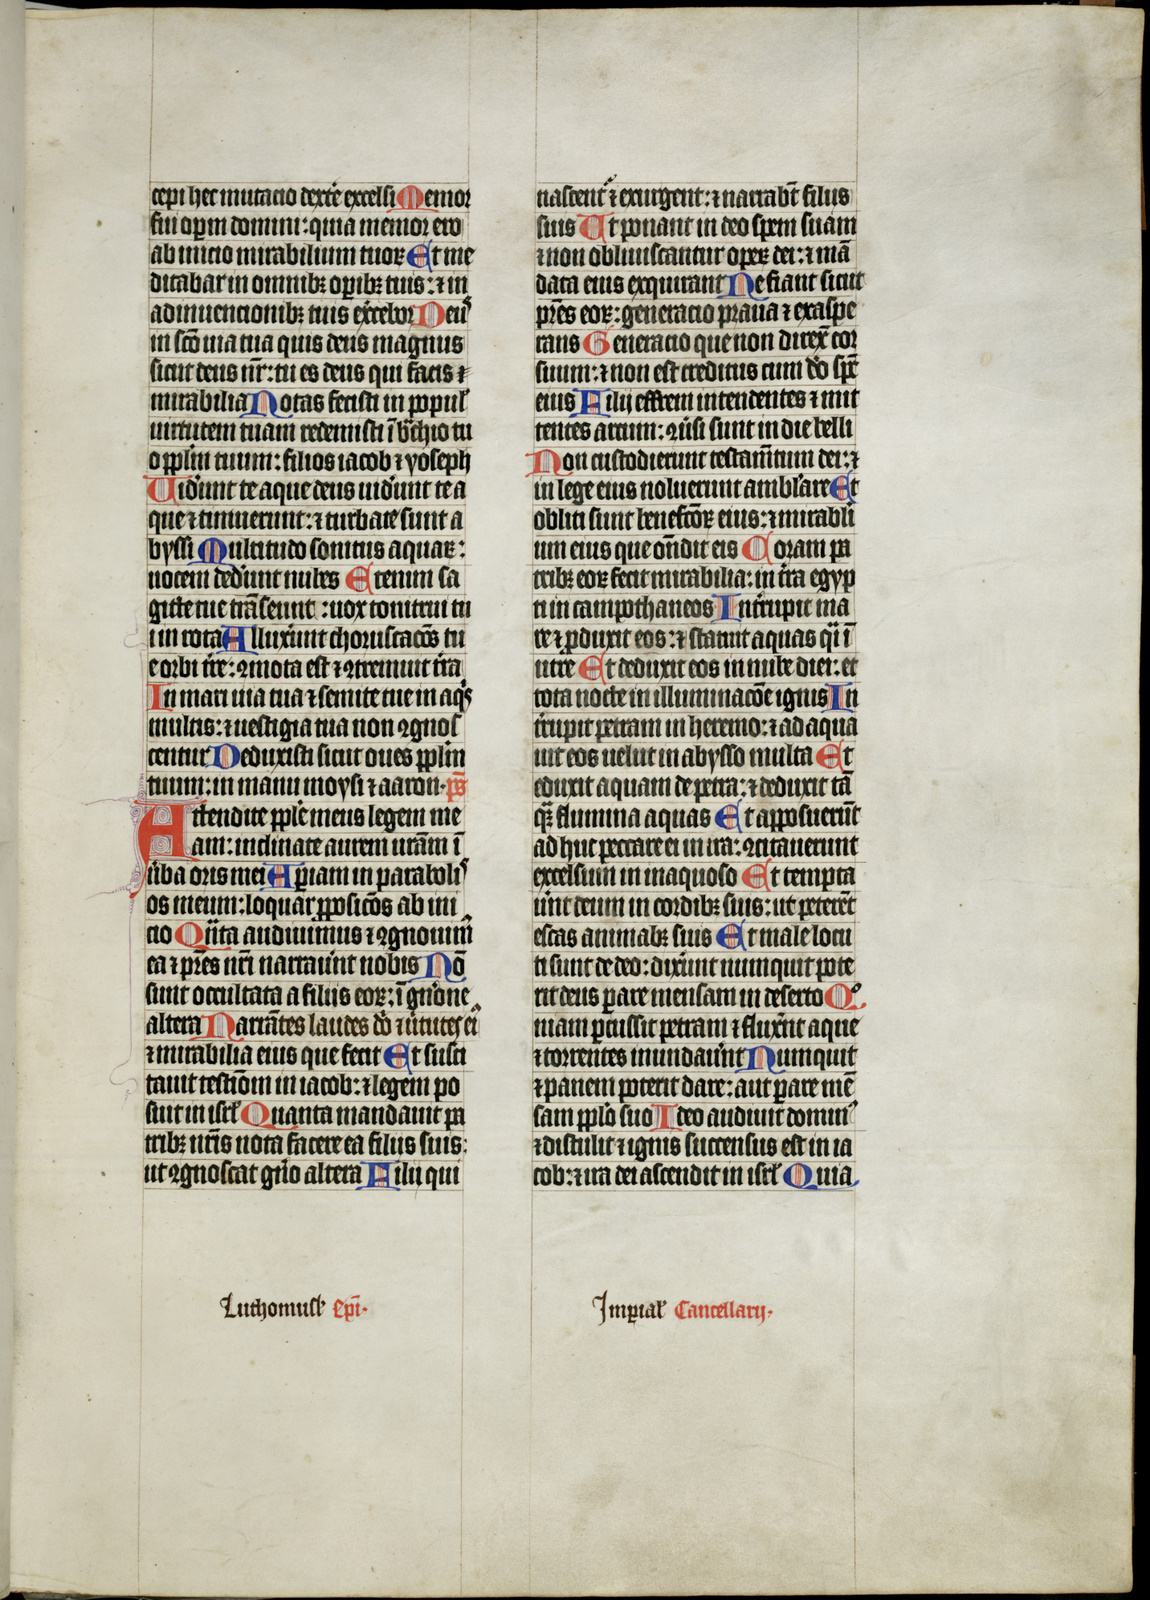 cepi hec mutacio dext̃e excelsi Memor
fui oꝑum domini : quia memor ero
ab inicio mirabilium tuoꝝ Et me
ditabar in omnibꝫ oꝑibꝫ tuis : ⁊ in
adinuencionibꝫ tuis ex̃cebor Deus
in sc̃o uia tua quis deus magnus
sicut deus nr̃ : tu es deus qui facis
mirabilia Notas fecisti in popul᷒
uirtutem tuam redemisti ĩ br̃chio tu
o ppl̃m tuum : filios iacob ⁊ yoseph
Uid̃unt te aque deus uid̃unt te a
que ⁊ timuerunt : ⁊ turbate sunt a
byssi Multitudo sonitus aquaꝝ :
uocem ded̃unt nubes Etenim sa
gitte tue trãseunt : uox tonitrui tu
i in rota Alluxr̃unt choruscacõs tu
e orbi tr̃e : ꝯmota est ⁊ ꝯtremuit tr̃a
In mari uia tua ⁊ semite tue in aqs᷒
multis : ⁊ uestigia tua non ꝯgnos
centur Deduxisti sicut oues ppl̃m
tuum : in manu moysi ⁊ aaron · ps̃
Attendite pple meus legem me
am : inclinate aurem ur̃am ĩ
ũba oris mei Aꝑiam in paraboli᷒
os meum : loquar ꝓposicõs ab ini
cio Qñta audiuimus ⁊ ꝯgnouim᷒
ea ⁊ pr̃es nr̃i narraũnt nobis Nõ
sunt occultata a filiis eoꝝ : ĩ gñone
altera Narrãtes laudes dõ ⁊ ũtutes ei᷒
⁊ mirabilia eius que fecit Et susci
tauit testiõm in iacob : ⁊ legem po
suit in isrl̃ Quanta mandauit pa
tribꝫ nr̃is nota facere ea filiis suis :
ut ꝯgnoscat gñ̃o altera Filij qui
nascent̃ ⁊ exurgent : ⁊ narrabt̃ filiis
suis Ut ponant in deo spem suam
⁊ non obliuiscantur opeꝝ dei : ⁊ mã
data eius exquirant Ne fiant sicut
pr̃es eoꝝ : generacio praua ⁊ exaspe
rans Generacio que non direx̃ cor
suum : ⁊ non est creditus cum dõ spc̃
eius Filij effrem intendentes ⁊ mit
tentes arcum : ꝯũsi sunt in die belli
Non custodierunt testam̃tum dei : ⁊
in lege eius noluerunt ambl̃are Et
obliti sunt benefc̃oꝝ eius : ⁊ mirabili
um eius que oñdit eis Coram pa
tribꝫ eoꝝ fecit mirabilia : in tr̃a egyp
ti in campo thaneos Intr̃rupit ma
re ⁊ ꝑduxit eos : ⁊ statuit aquas qͥ ĩ
utre Et deduxit eos in nube diei : et
tota nocte in illuminacõe ignis In
tr̃rupit petram in heremo : ⁊ adaqua
uit eos uelut in abysso multa Et
eduxit aquam de petra : ⁊ deduxit tã
qꝫ flumina aquas Et apposuerũt
ad huc peccare ei in ira : ꝯcitauerunt
excelsum in inaquoso Et tempta
ũnt deum in cordibꝫ suis : ut peterẽt
escas animabꝫ suis Et male locu
ti sunt de deo : dix̃unt numquit pote
rit deus ꝑare mensam in deserto Qͦ
niam ꝑcussit petram ⁊ flux̃nt aque
⁊ torrentes inundaũnt Numquit
⁊ panem poterit dare : aut ꝑare mẽ
sam ppl̃o suo Ideo audiuit domin᷒
⁊ distulit ⁊ ignis succensus est in ia
cob : ⁊ ira dei ascendit in isrl̃ Quia
Luthomusl̃ Ep̃i ·
Imꝑial̃ Cancellarij ·